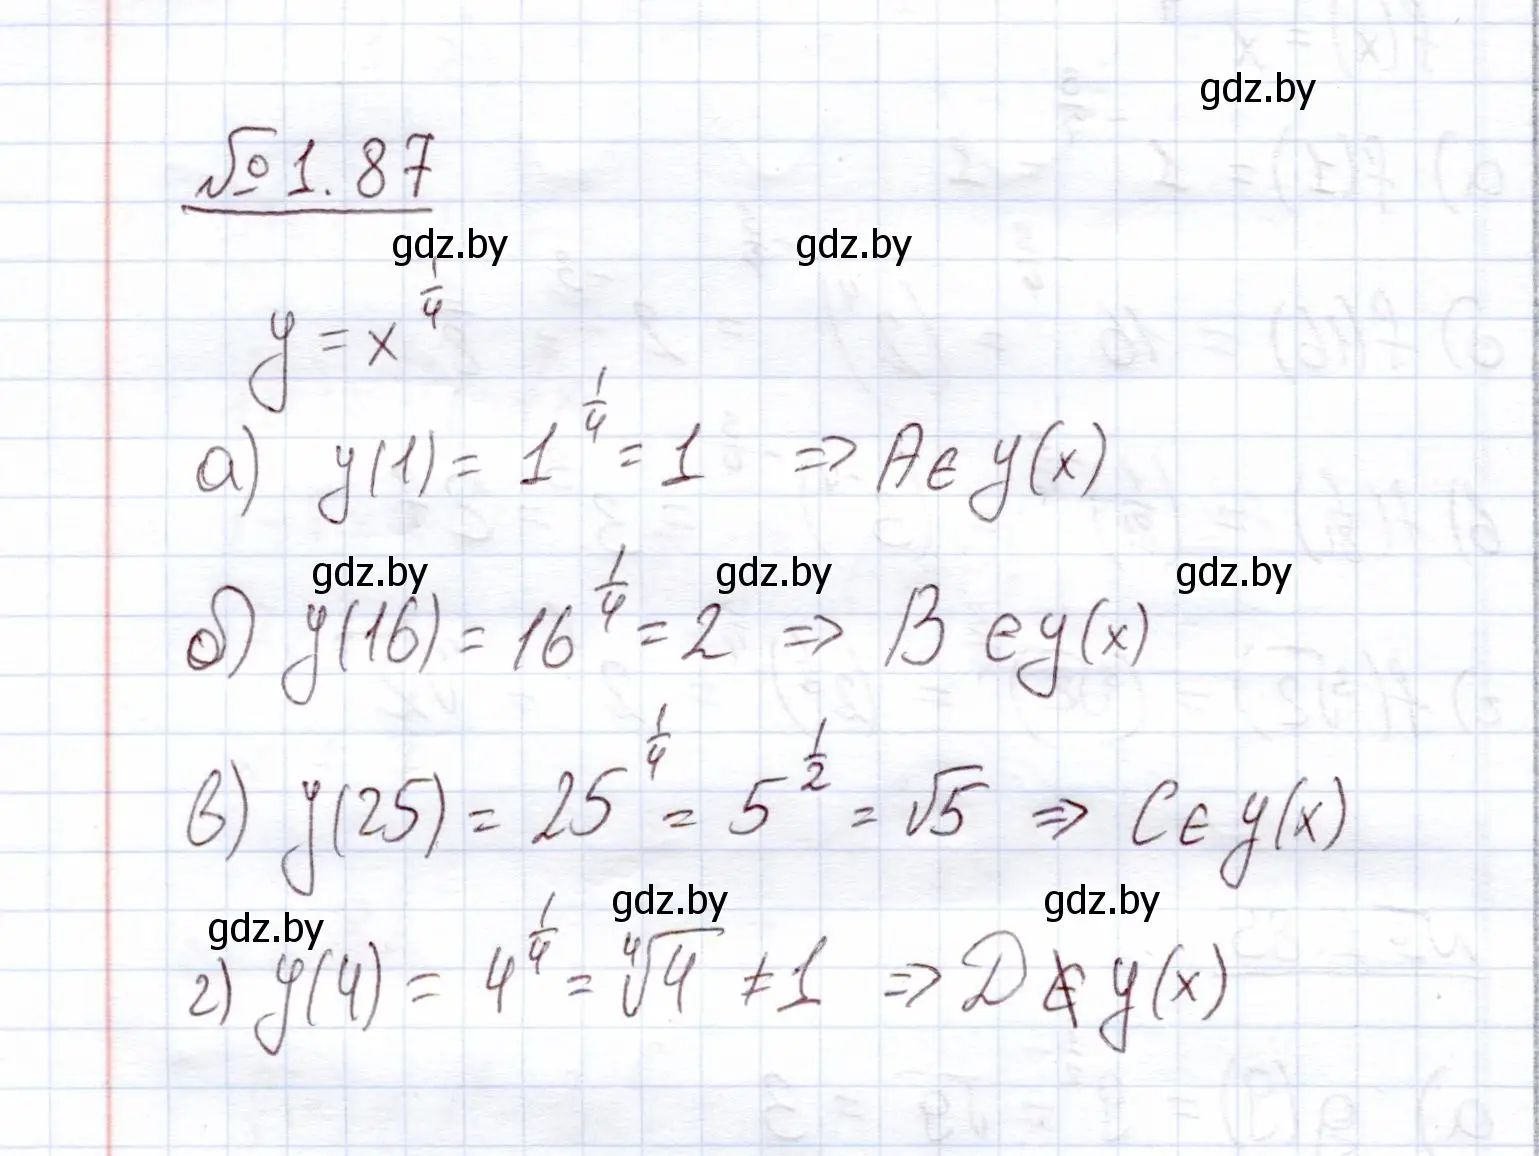 gdz.by
№ 1.87
gdz.by gdz.by
y = x^{1/4}
а) y(1) = 1^{1/4} = 1 => A ∈ y(x)
gdz.by gdz.by gdz.by
б) y(16) = 16^{1/4} = 2 => B ∈ y(x)
в) y(25) = 25^{1/4} = 5^{1/2} = √5 => C ∈ y(x)
gdz.by gdz.by gdz.by
г) y(4) = 4^{1/4} = ∜4 ≠ 1 => D ∉ y(x)